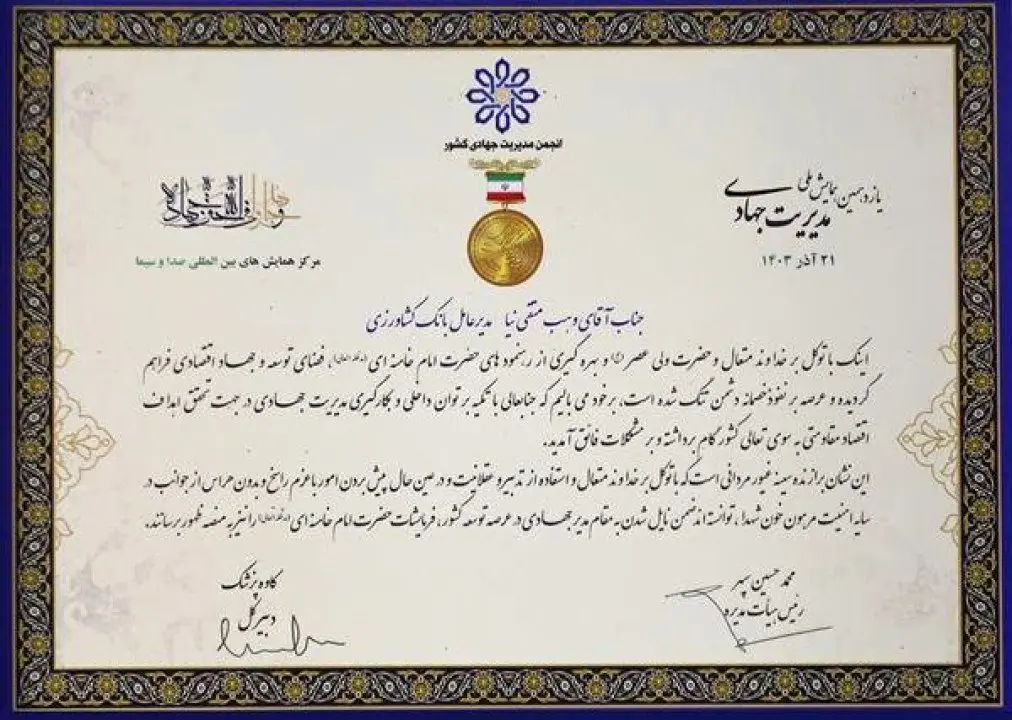 انجمن مدیریت جهادی کشور
یازدهمین همایش ملی
مدیریت جهادی
۲۱ آذر ۱۴۰۳
مرکز همایش های بین المللی صدا و سیما
جناب آقای وهب متقی نیا مدیرعامل بانک کشاورزی
اینک با توکل بر خداوند متعال و حضرت ولی عصر (عج) و بهره گیری از رهنمود های حضرت امام خامنه ای (مدظله العالی)، فضای توسعه و جهاد اقتصادی فراهم
گردیده و عرصه بر نفوذ خصمانه دشمن تنگ شده است، بر خود می بالیم که جنابعالی با تکیه بر توان داخلی و بکارگیری مدیریت جهادی در جهت تحقق اهداف
اقتصاد مقاومتی به سوی تعالی کشور گام برداشته و بر مشکلات فائق آمدید.
این نشان برازنده سینه غیور مردانی است که با توکل بر خداوند متعال و استفاده از تدبیر و عقلانیت و در عین حال پیش بردن امور با عزم راسخ و بدون هراس از جوانب در
سایه امنیت مرهون خون شهدا، توانسته اند ضمن نایل شدن به مقام مدیر جهادی در عرصه توسعه کشور، فرمایشات حضرت امام خامنه ای (مدظله العالی) را نیز به منصه ظهور برسانند.
محمد حسین سپهر
رئیس هیأت مدیره
کاوه پزشک
دبیر کل